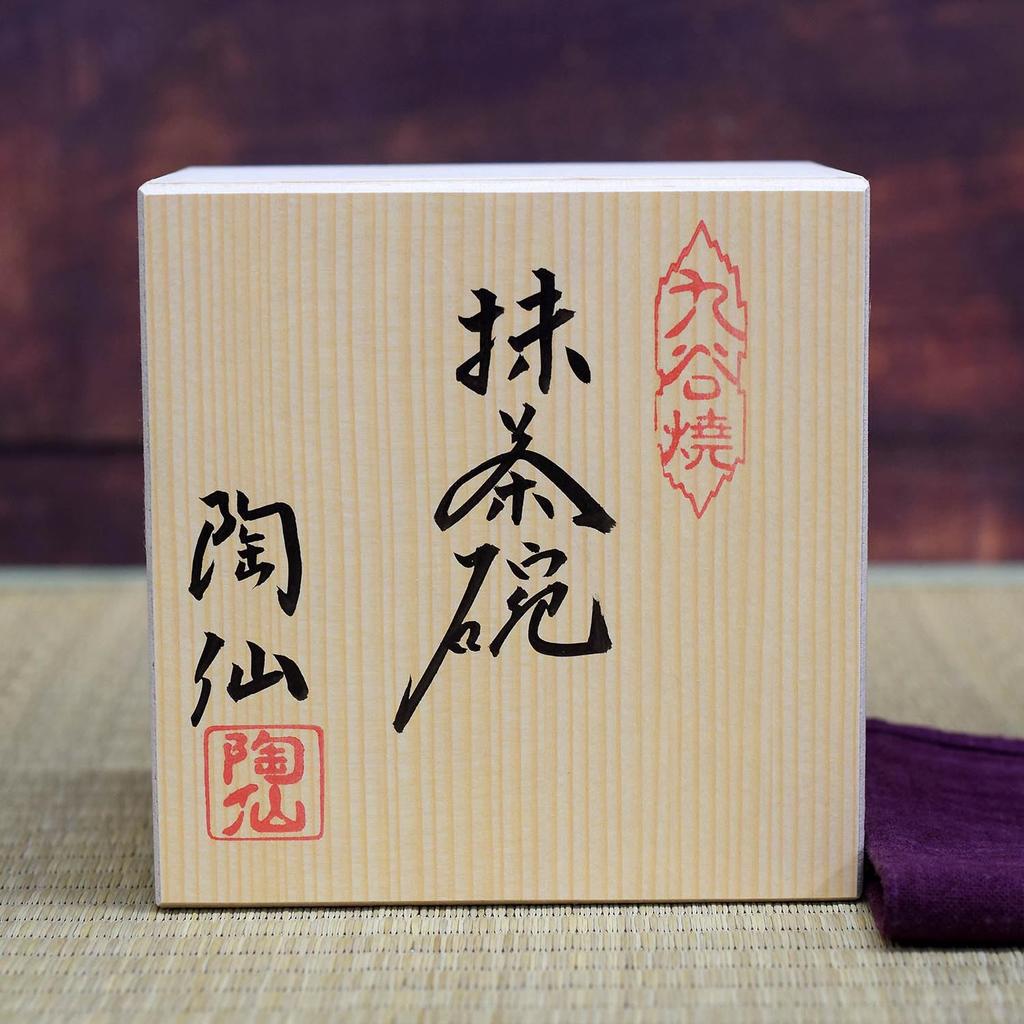 九谷焼
抹茶碗
陶仙
陶仙